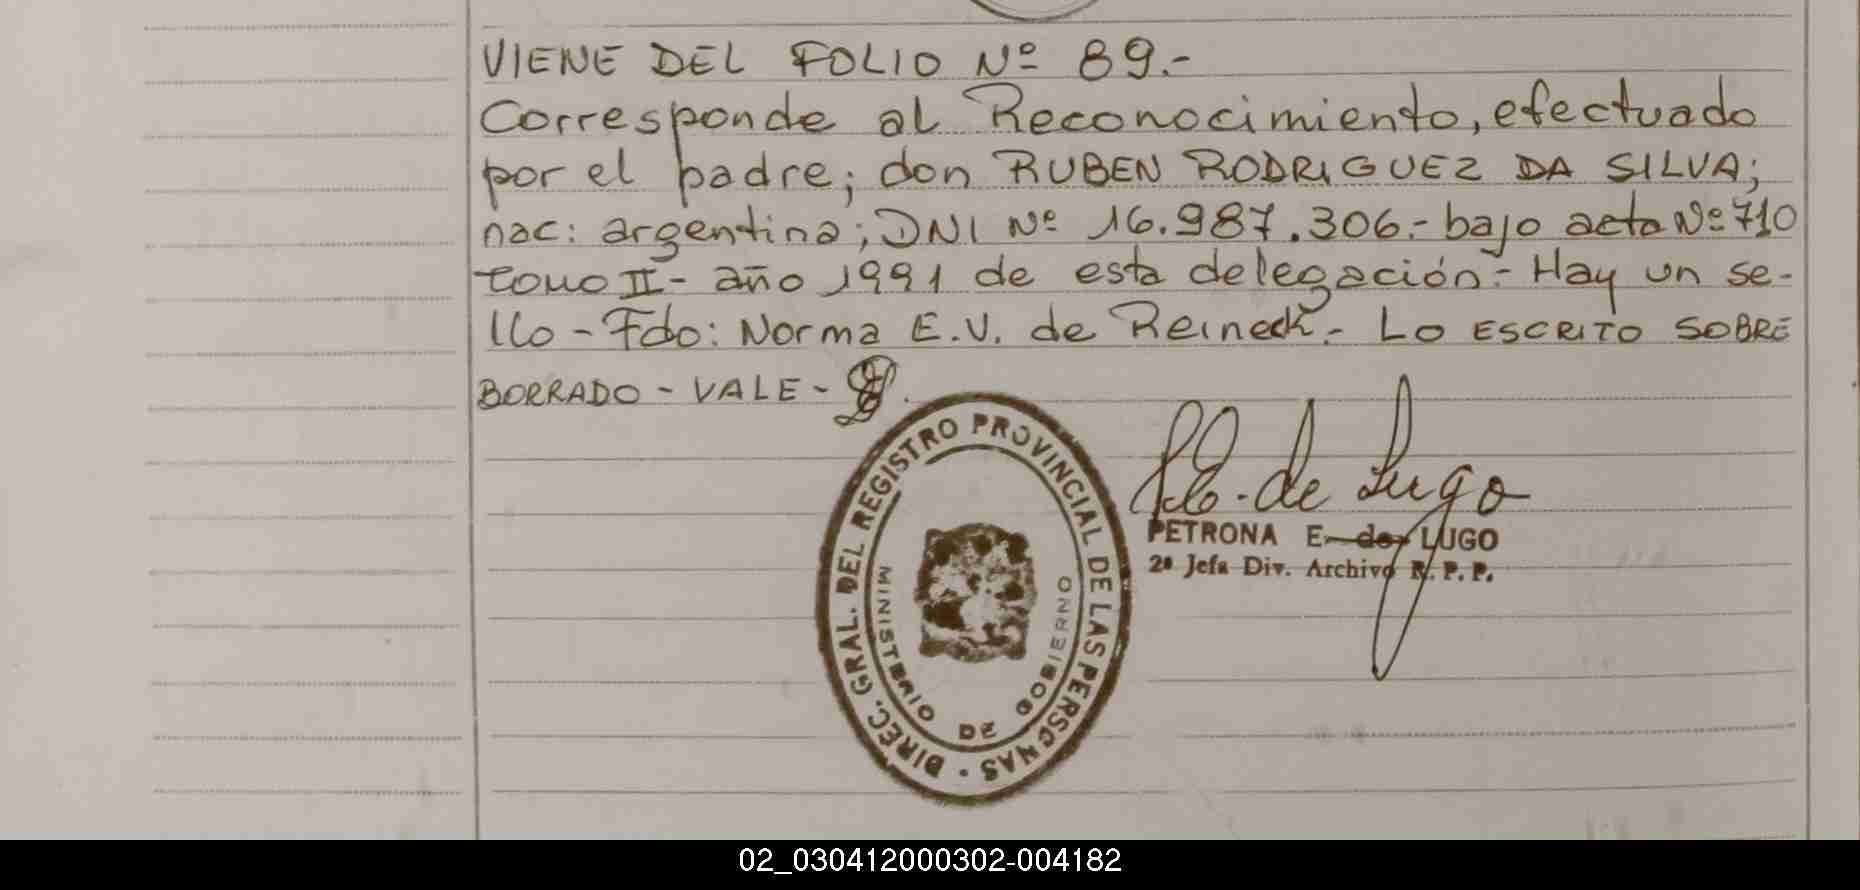 VIENE DEL FOLIO Nº 89.-
Corresponde al Reconocimiento, efectuado
por el padre; don RUBEN RODRIGUEZ DA SILVA;
nac: argentina; DNI Nº 16.987.306.- bajo acta Nº 710
tomo II - año 1991 de esta delegación.- Hay un se-
llo - Fdo: Norma E.V. de Reineck.- LO ESCRITO SOBRE
BORRADO - VALE -
DIREC. GRAL. DEL REGISTRO PROVINCIAL DE LAS PERSONAS
MINISTERIO DE GOBIERNO
de Lugo
PETRONA E. de LUGO
2ª Jefa Div. Archivo R. P. P.
02_030412000302-004182